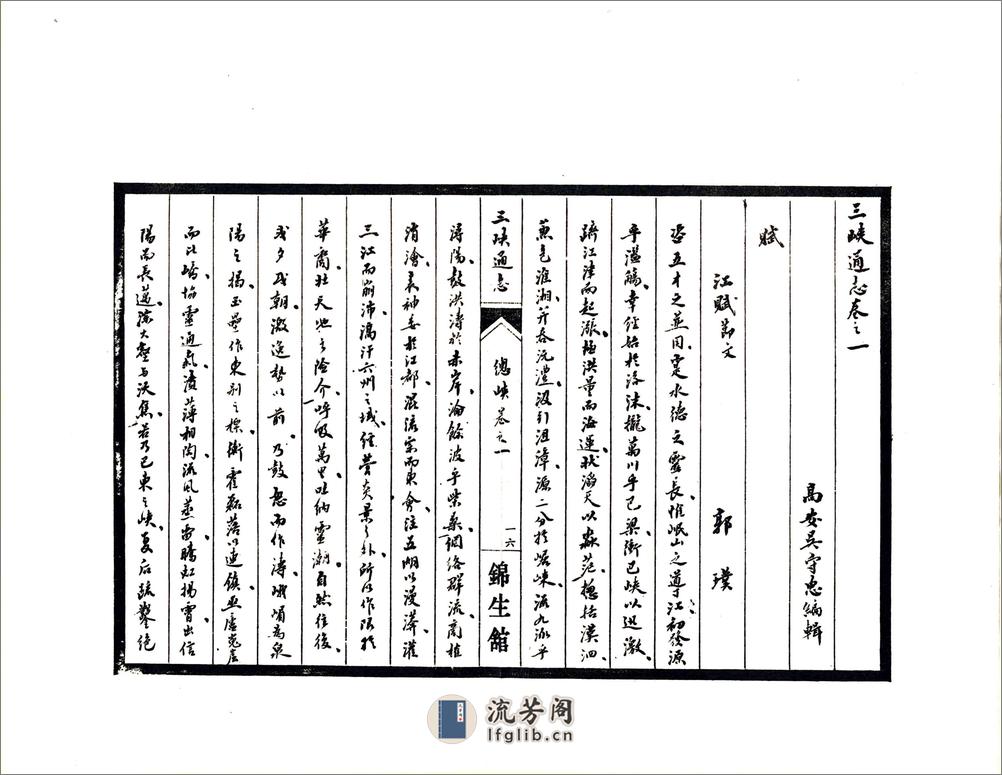 三峽通志卷之一
高安吳守忠編輯
賦
江賦節文 郭璞
咨五才之並用寔水德之靈長惟岷山之導江初發源
乎濫觴聿經始於洛沫攏萬川乎巴梁衝巴峽以迅激
躋江津而起漲極洪量而海運狀滔天以淼茫總括漢泗
兼包淮湘并吞沅澧汲引沮漳源二分於崌崍流九派乎
三峽通志 總峽卷之一 一六 錦生舘
潯陽鼓洪濤於赤岸淪餘波乎柴桑網絡群流商搉
涓澮表神委於江都混流宗而東會注五湖以漫漭灌
三江而漰沛滈汗六州之域經營炎景之外所以作限於
華裔壯天地之險介呼吸萬里吐納靈潮自然往復
或夕或朝激逸勢以前乃鼓怒而作濤峨嵋為泉
陽之揭玉壘作東別之標衡霍磊落以連鎮巫廬嵬崫
而比嶠協靈通氣濆薄相陶流風蒸雷騰虹揚霄出信
陽而長邁淙大壑与沃焦若乃巴東之峽夏后疏鑿絕
流芳阁
lfglib.cn